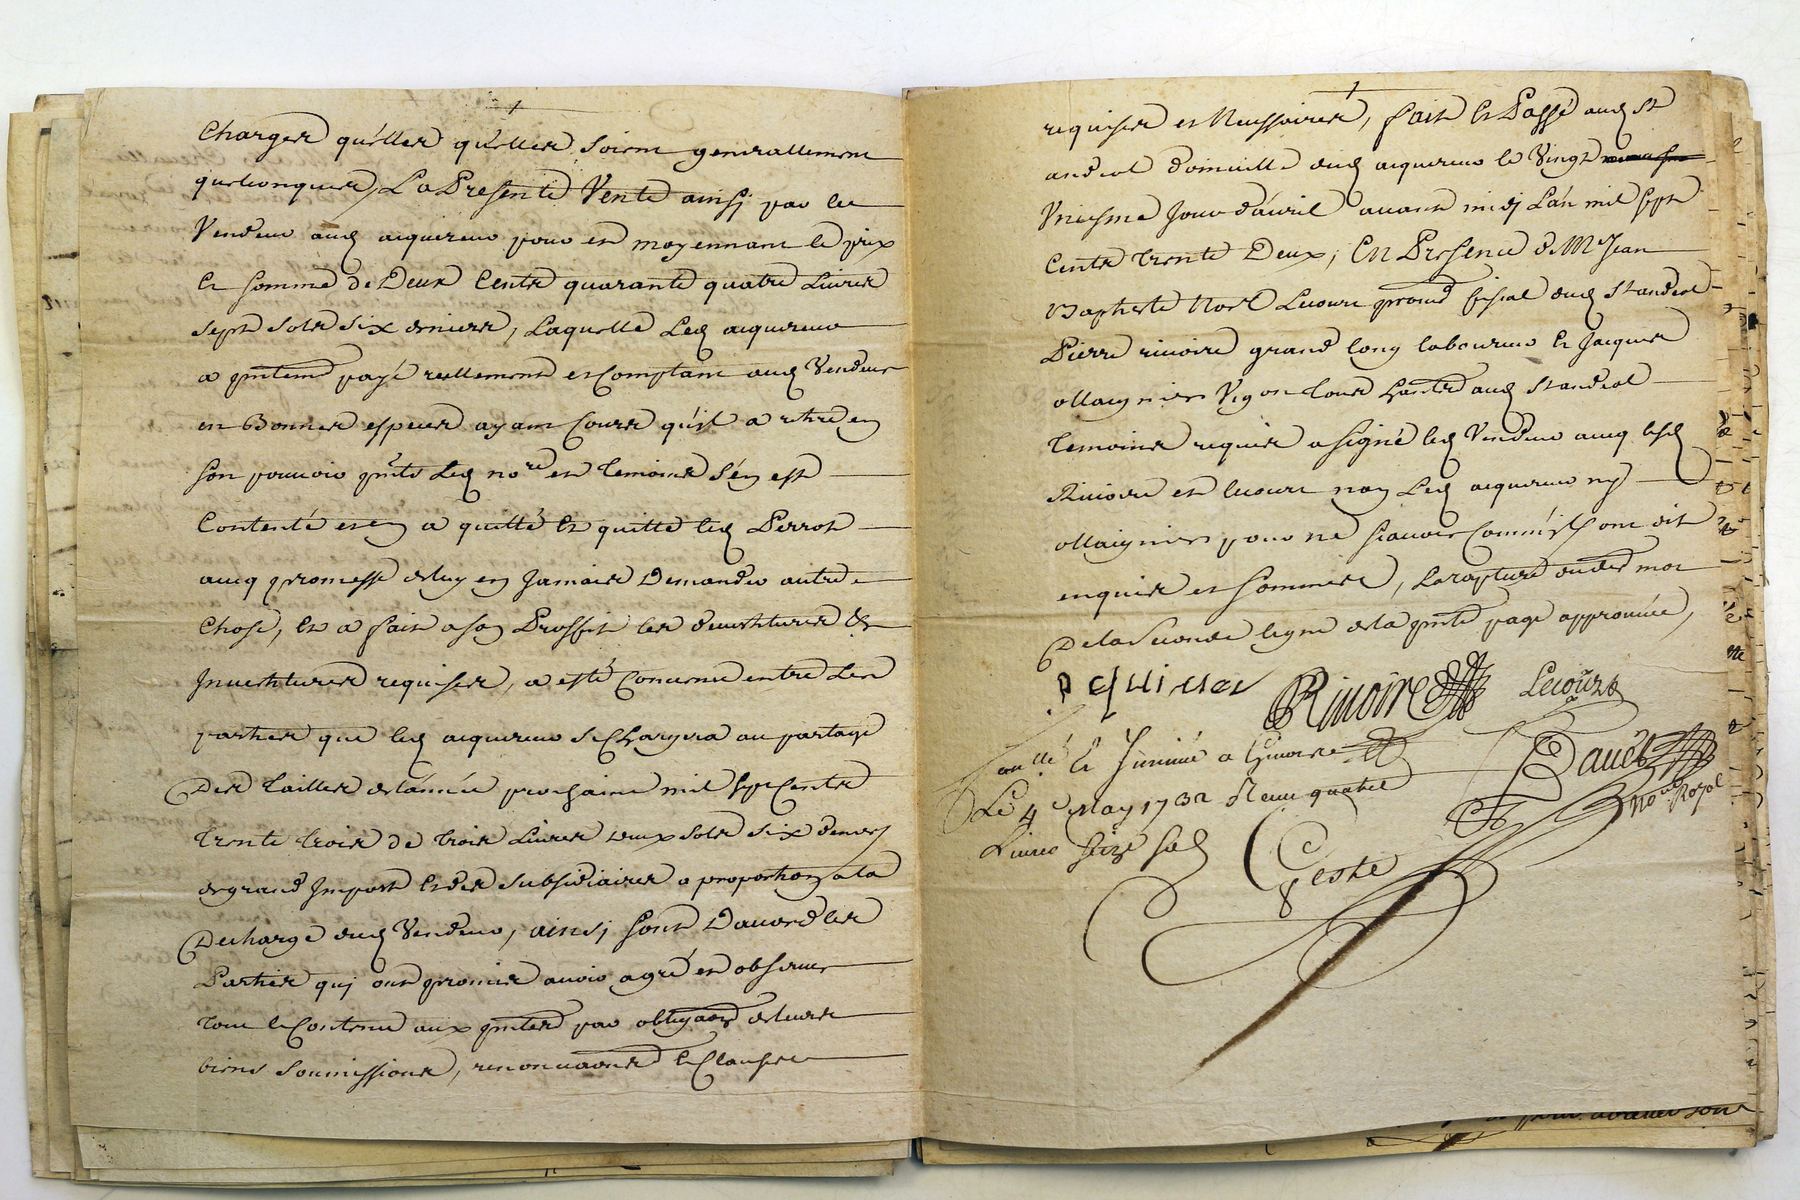 Charges qu'elles qu'elles soient generallement
quelconques, La Presente Vente ainsy par led
Vendeur aud acquereur pour et moyennant le prix
Et somme de Deux Cents quarante quatre Livres
sept sols six deniers, Laquelle Led acquereur
a pntemt payé reellement et Comptant aud Vendeur
en Bonnes especes ayant Cours qu'il a retiré en
son pouvoir pnts Led nore et temoins s'en est
Contenté et en a quitté Et quitte led Perrot
avec promesse de luy en Jamais Demander autre
Chose, Et a fait a son Proffit les devestitures Et
Jnvestitures requises, a esté Convenu entre Les
parties que led acquereur se Chargera au partage
Des tailles de l'année prochaine mil sept Cents
trente trois de trois Livres deux sols six deniers
de grand Jmpost Et des subsidiaires a proportion a la
Decharge dud Vendeur, ainsj sont D'accord les
Parties quj ont promis avoir agré et observer
tout le Contenu aux pntes par obligaons de leurs
biens soumissions, renonciaons Et Clauses
requises et Necessaires, fait Et Passé aud St
andeol domicille dud acquereur le Vingt
Vniesme Jour d'avril avant midj L'an mil sept
Cents trente Deux, En Presence de Mr Jean
Baptiste Noel Lecourt procur fiscal dud St andeol
Pierre rivoire grand long laboureur Et Jacques
ollagnier Vigon tous habits aud St andeol
temoins requis a signé led Vendeur avec lesd
Rivoire et lecourt non Led acquereur ny
ollagnier pour ne sçavoir Comm'ils ont dit
enquis et sommés, la rapture du der mot
De la Seconde ligne de la pnte page approuvée,
Rivoire Lecourt
Davet
nore Royal
Coollé Et Jnsinué a
Le 4e May 1732 Reçu quatre
Livres seize sols
Geste